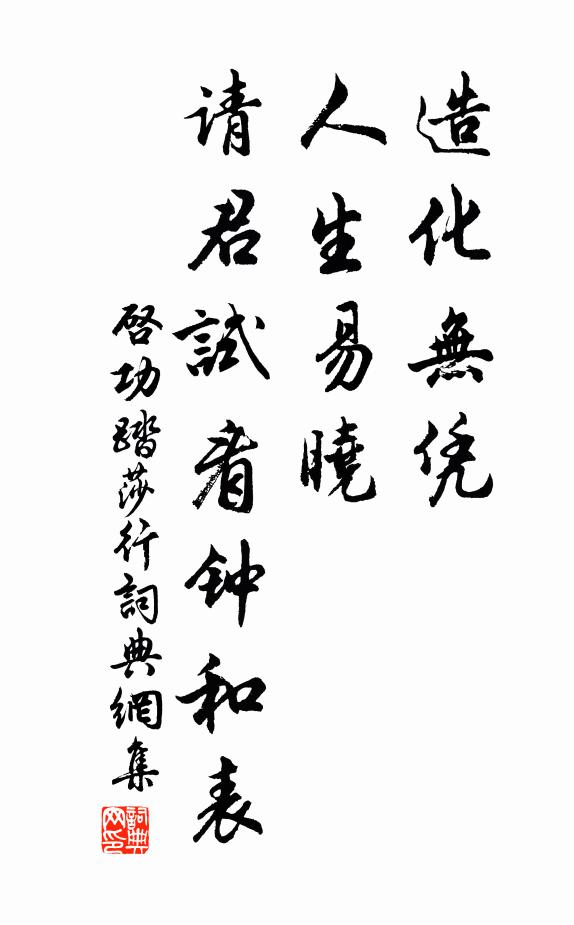 造化無凭
人生易曉
请君試看钟和表
啓功踏莎行詞典網集
詞典网印